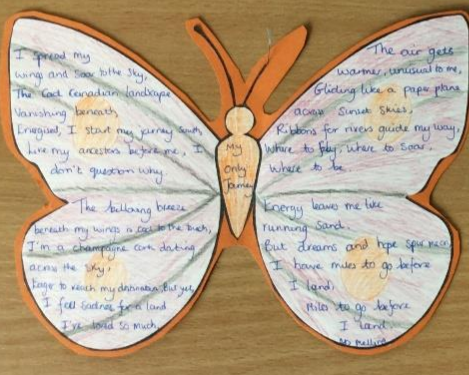 I spread my
wings and Soar to the sky,
The Cool Canadian landscape
Vanishing beneath,
Energised, I start my journey South,
Like my ancestors before me, I
don't question why.
The billowing breeze
beneath my wings is cool to the touch,
I'm a champagne cork darting
across the sky,
Eager to reach my destination, but yet
I feel sadness for a land
I've loved so much.
My
Only
Journey
The air gets
warmer, unusual to me,
Gliding like a paper plane
across Sunset Skies,
Ribbons for rivers guide my way,
Where to fly, where to Soar,
where to be.
Energy leaves me like
running Sand.
But dreams and hope spur me on
I have miles to go before
I land,
Miles to go before
I land.